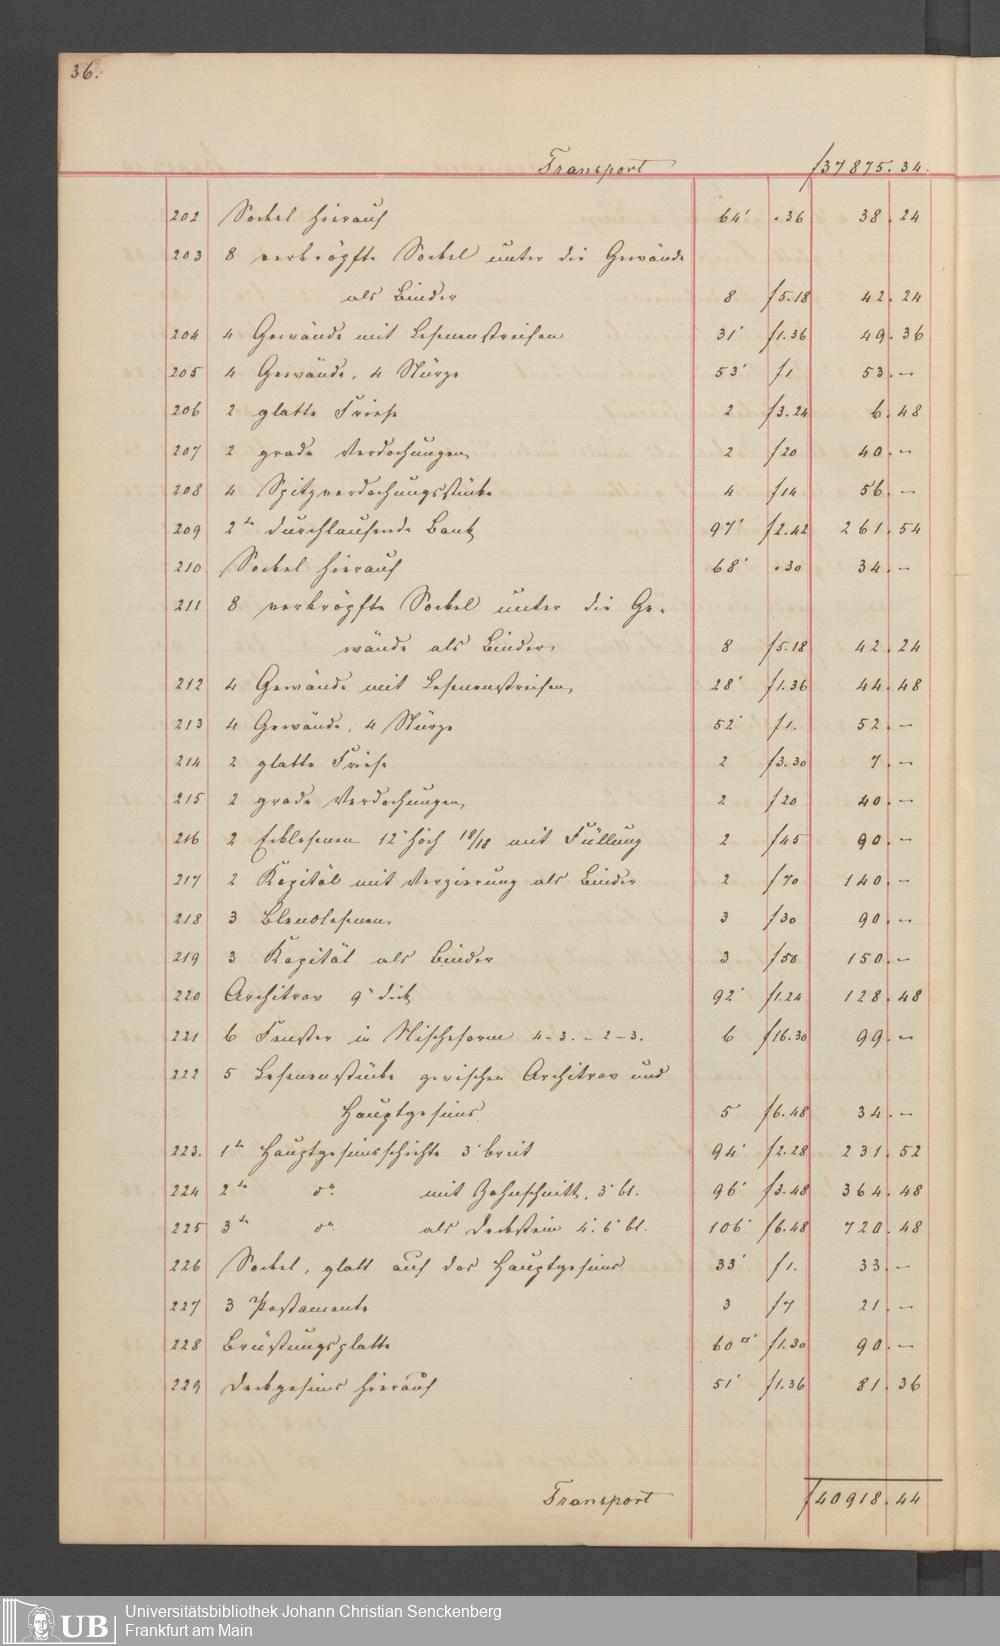 36.
Transport f37875.34.
202 Sockel hierauf 64' .36 38.24
203 8 verkröpfte Sockel unter die Gewände
als Binder 8 f5.18 42.24
204 4 Gewände mit Lesenenstreifen 31' f1.36 49.36
205 4 Gewände, 4 Stürze 53' f1 53.–
206 2 glatte Friese 2 f3.24 6.48
207 2 grade Verdachungen 2 f20 40.–
208 4 Spitzverdachungsstücke 4 f14 56.–
209 2te durchlaufende Bank 97' f2.42 261.54
210 Sockel hierauf 68' .30 34.–
211 8 verkröpfte Sockel unter die Ge-
wände als Binder 8 f5.18 42.24
212 4 Gewände mit Lesenenstreifen 28' f1.36 44.48
213 4 Gewände, 4 Stürze 52' f1. 52.–
214 2 glatte Friese 2 f3.30 7.–
215 2 grade Verdachungen 2 f20 40.–
216 2 Ecklesenen 12' hoch 18/18 mit Füllung 2 f45 90.–
217 2 Kapitäl mit Verzierung als Binder 2 f70 140.–
218 3 Blendlesenen 3 f30 90.–
219 3 Kapitäl als Binder 3 f50 150.–
220 Architrav 9" dick 92' f1.24 128.48
221 6 Fenster in Nischeform 4-3.–2–3. 6 f16.30 99.–
222 5 Lesenenstücke zwischen Architrav und
Hauptgesims 5 f6.48 34.–
223. 1te Hauptgesimsschichte 3' breit 94' f2.28 231.52
224 2te do. mit Zahnschnitt, 3' bt. 96' f3.48 364.48
225 3te do. als Deckstein 4'.6" bt. 106' f6.48 720.48
226 Sockel, glatt auf das Hauptgesims 33' f1. 33.–
227 3 Postamente 3 f7 21.–
228 Brüstungsplatte 60□' f1.30 90.–
229 Deckgesims hierauf 51' f1.36 81.36
Transport f40918.44
UB
Universitätsbibliothek Johann Christian Senckenberg
Frankfurt am Main